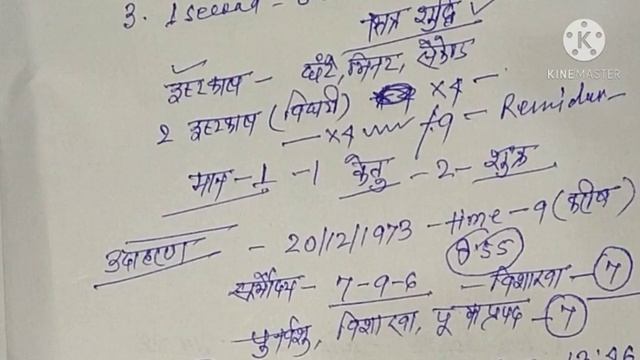 3. 1 second -
मित्र शुद्धि ✓
K
KINEMASTER
इष्टकाल - घंटे, मिनट, सेकेंड
2 इष्टकाल (विघटी) ×4 -
- ×4 ÷9 - Remider
मान - 1 - 1 केतु - 2 - शुक्र
उदाहरण - 20/12/1973 - time - 9 (करीब)
8:55
सूर्योदय - 7-9-6 - विशाखा - 7
पुनर्वसु, विशाखा, पू. भाद्रपद - 7